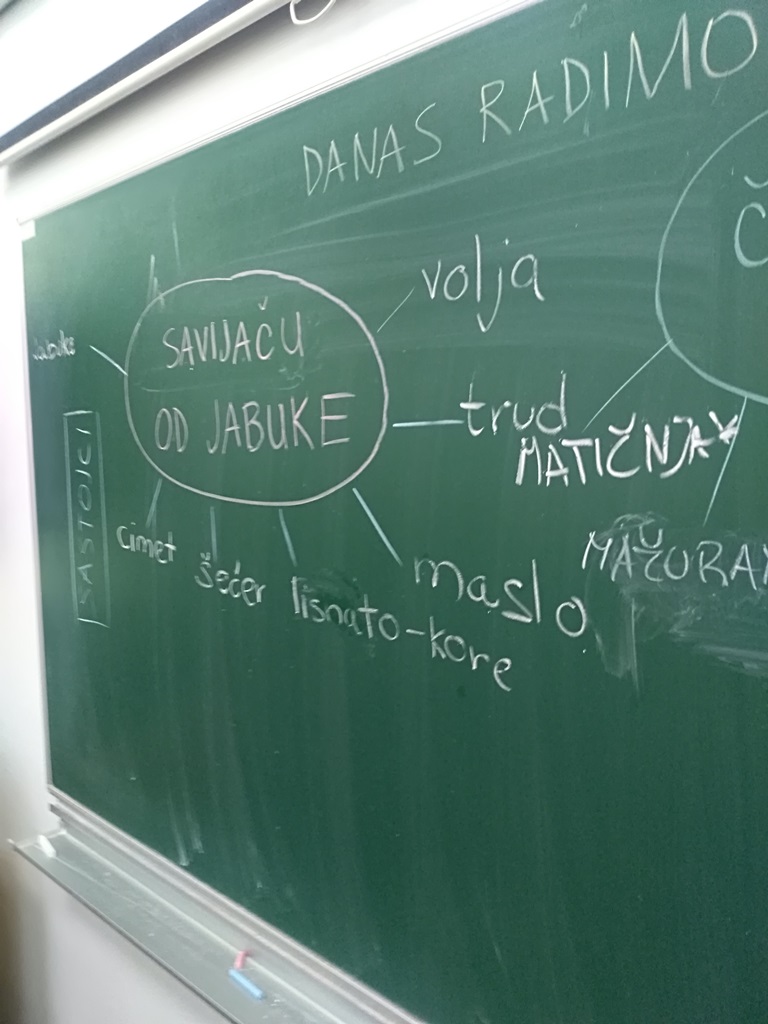 DANAS RADIMO
SAVIJAČU
OD JABUKE
volja
trud
maslo
lisnato-kore
šećer
cimet
Jabuke
SASTOJCI
Č
MATIČNJAK
MAŽURAN